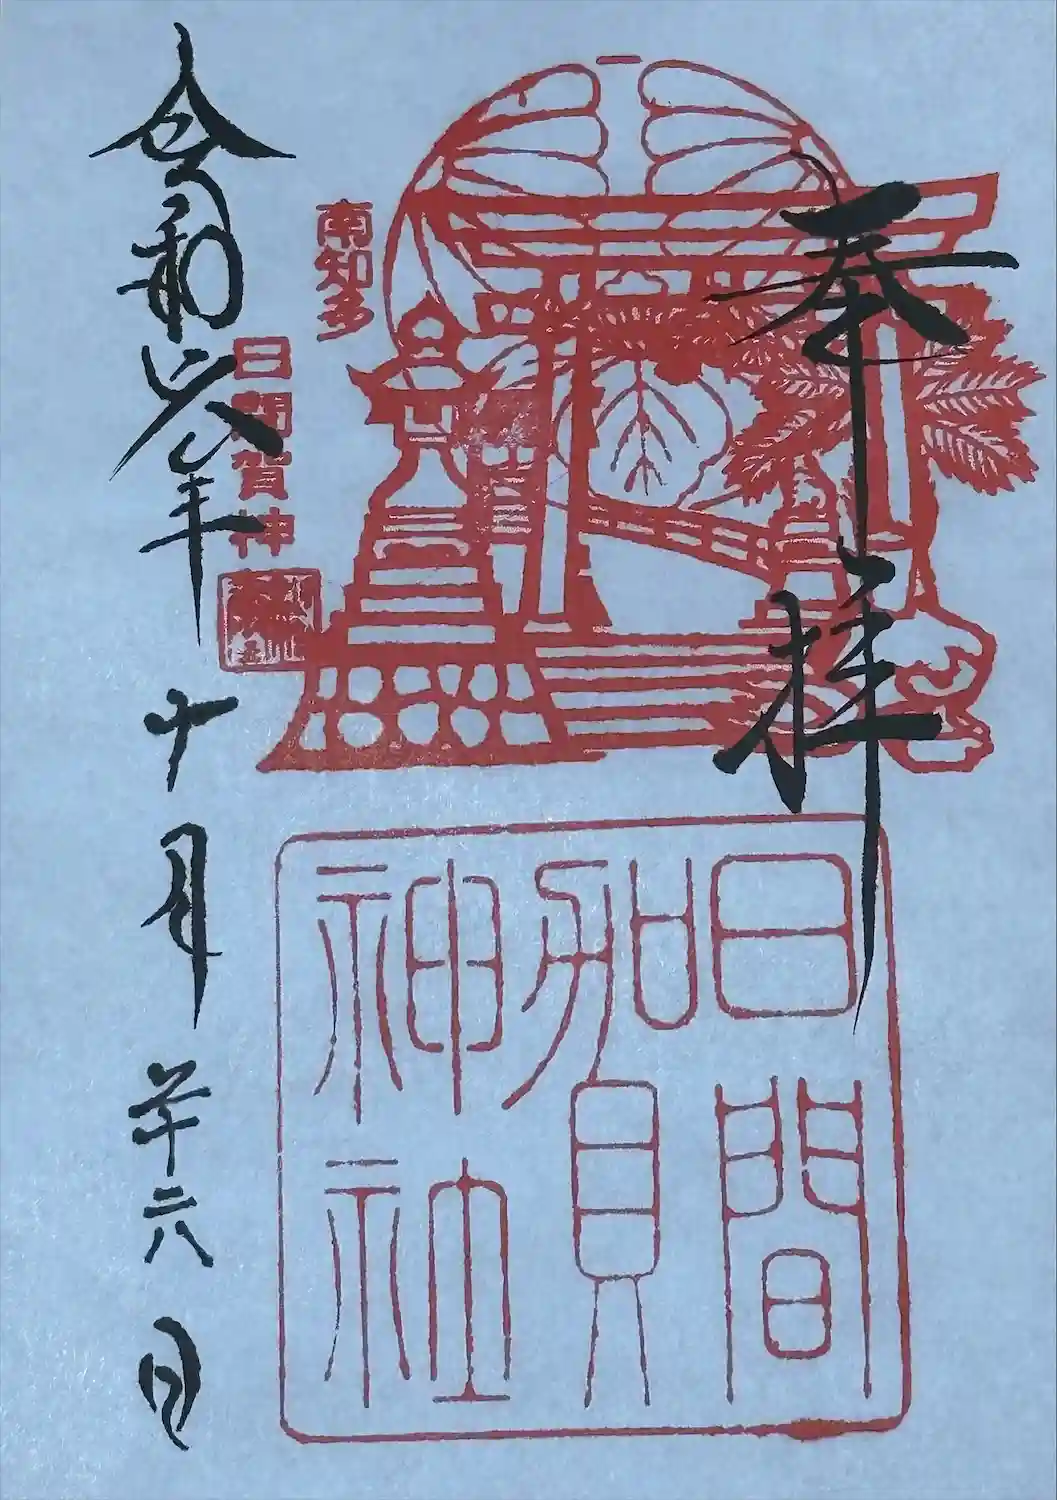 奉拝
南知多
日間賀神
日間
賀
神社
令和六年十月廿六日